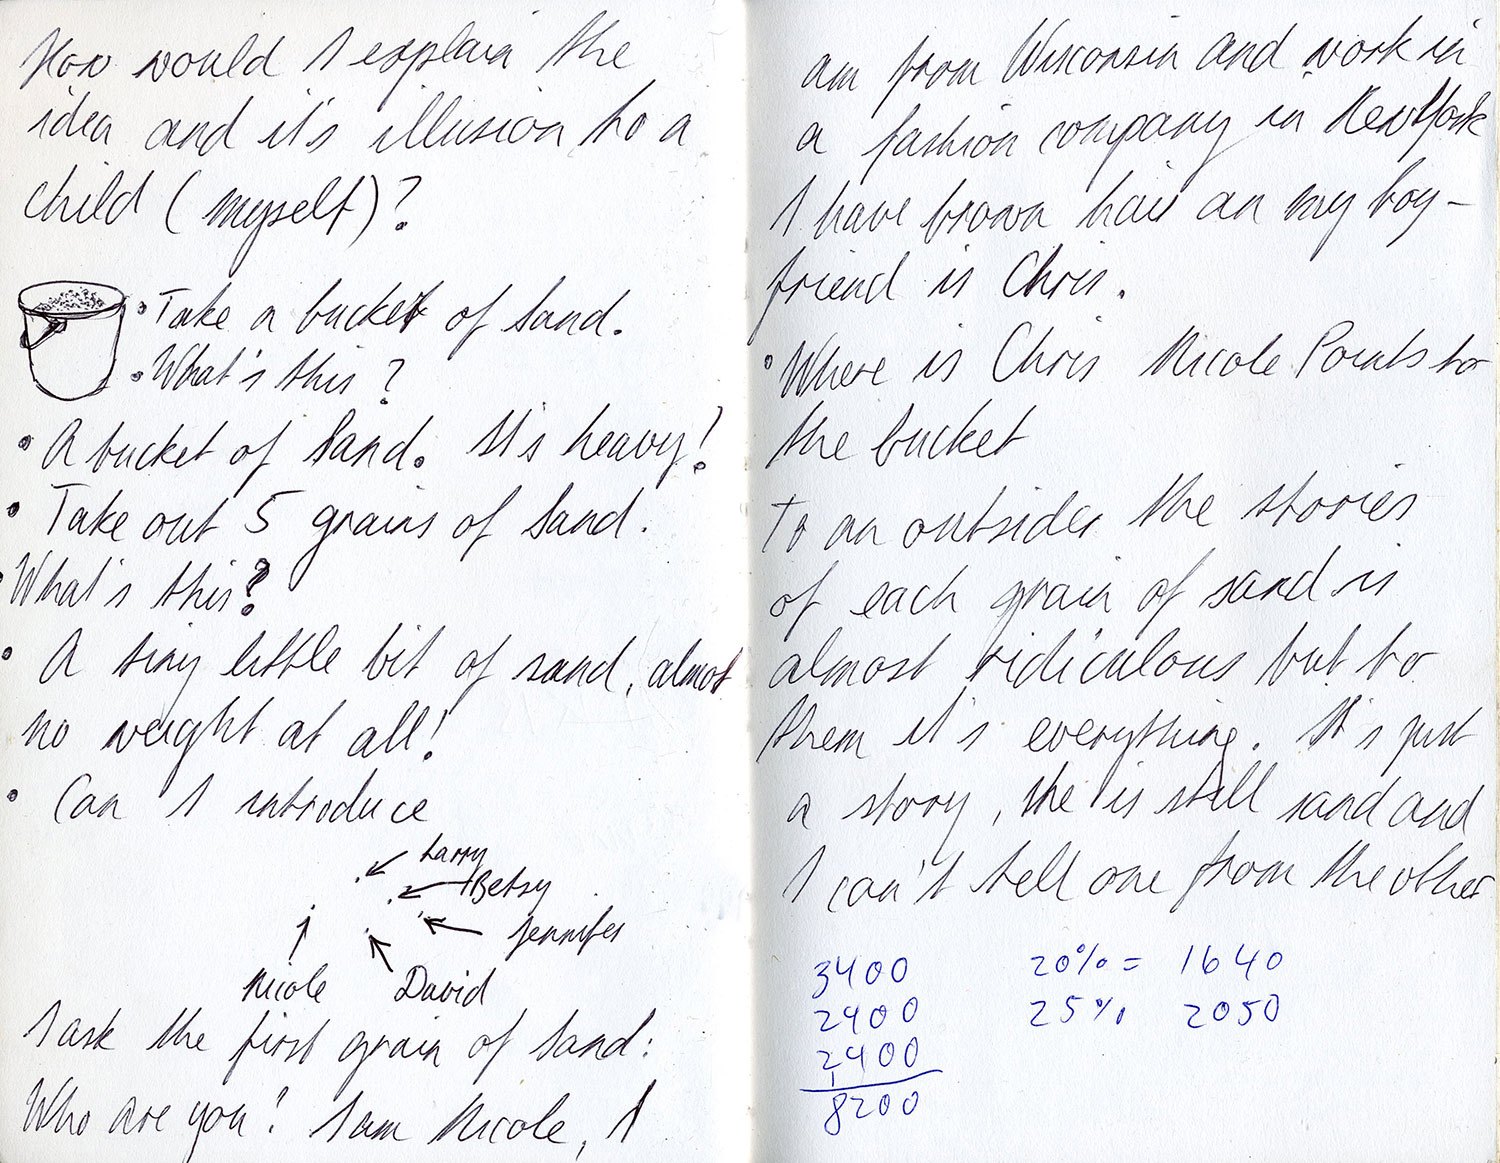 How would I explain the
idea and it's illusion to a
child (myself)?
• Take a bucket of sand.
• What's this?
• A bucket of sand. It's heavy!
• Take out 5 grains of sand.
• What's this?
• A tiny little bit of sand, almost
no weight at all!
• Can I introduce
Larry
Betsy
Jennifer
Nicole David
I ask the first grain of sand:
Who are you? I am Nicole, I
am from Wisconsin and work in
a fashion company in New York
I have brown hair an my boy-
friend is Chris.
• Where is Chris Nicole Points to
the bucket
To an outsider the stories
of each grain of sand is
almost ridiculous but to
them it's everything. It's just
a story, she is still sand and
I can't tell one from the other
3400 20% = 1640
2400 25% 2050
2400
1
8200